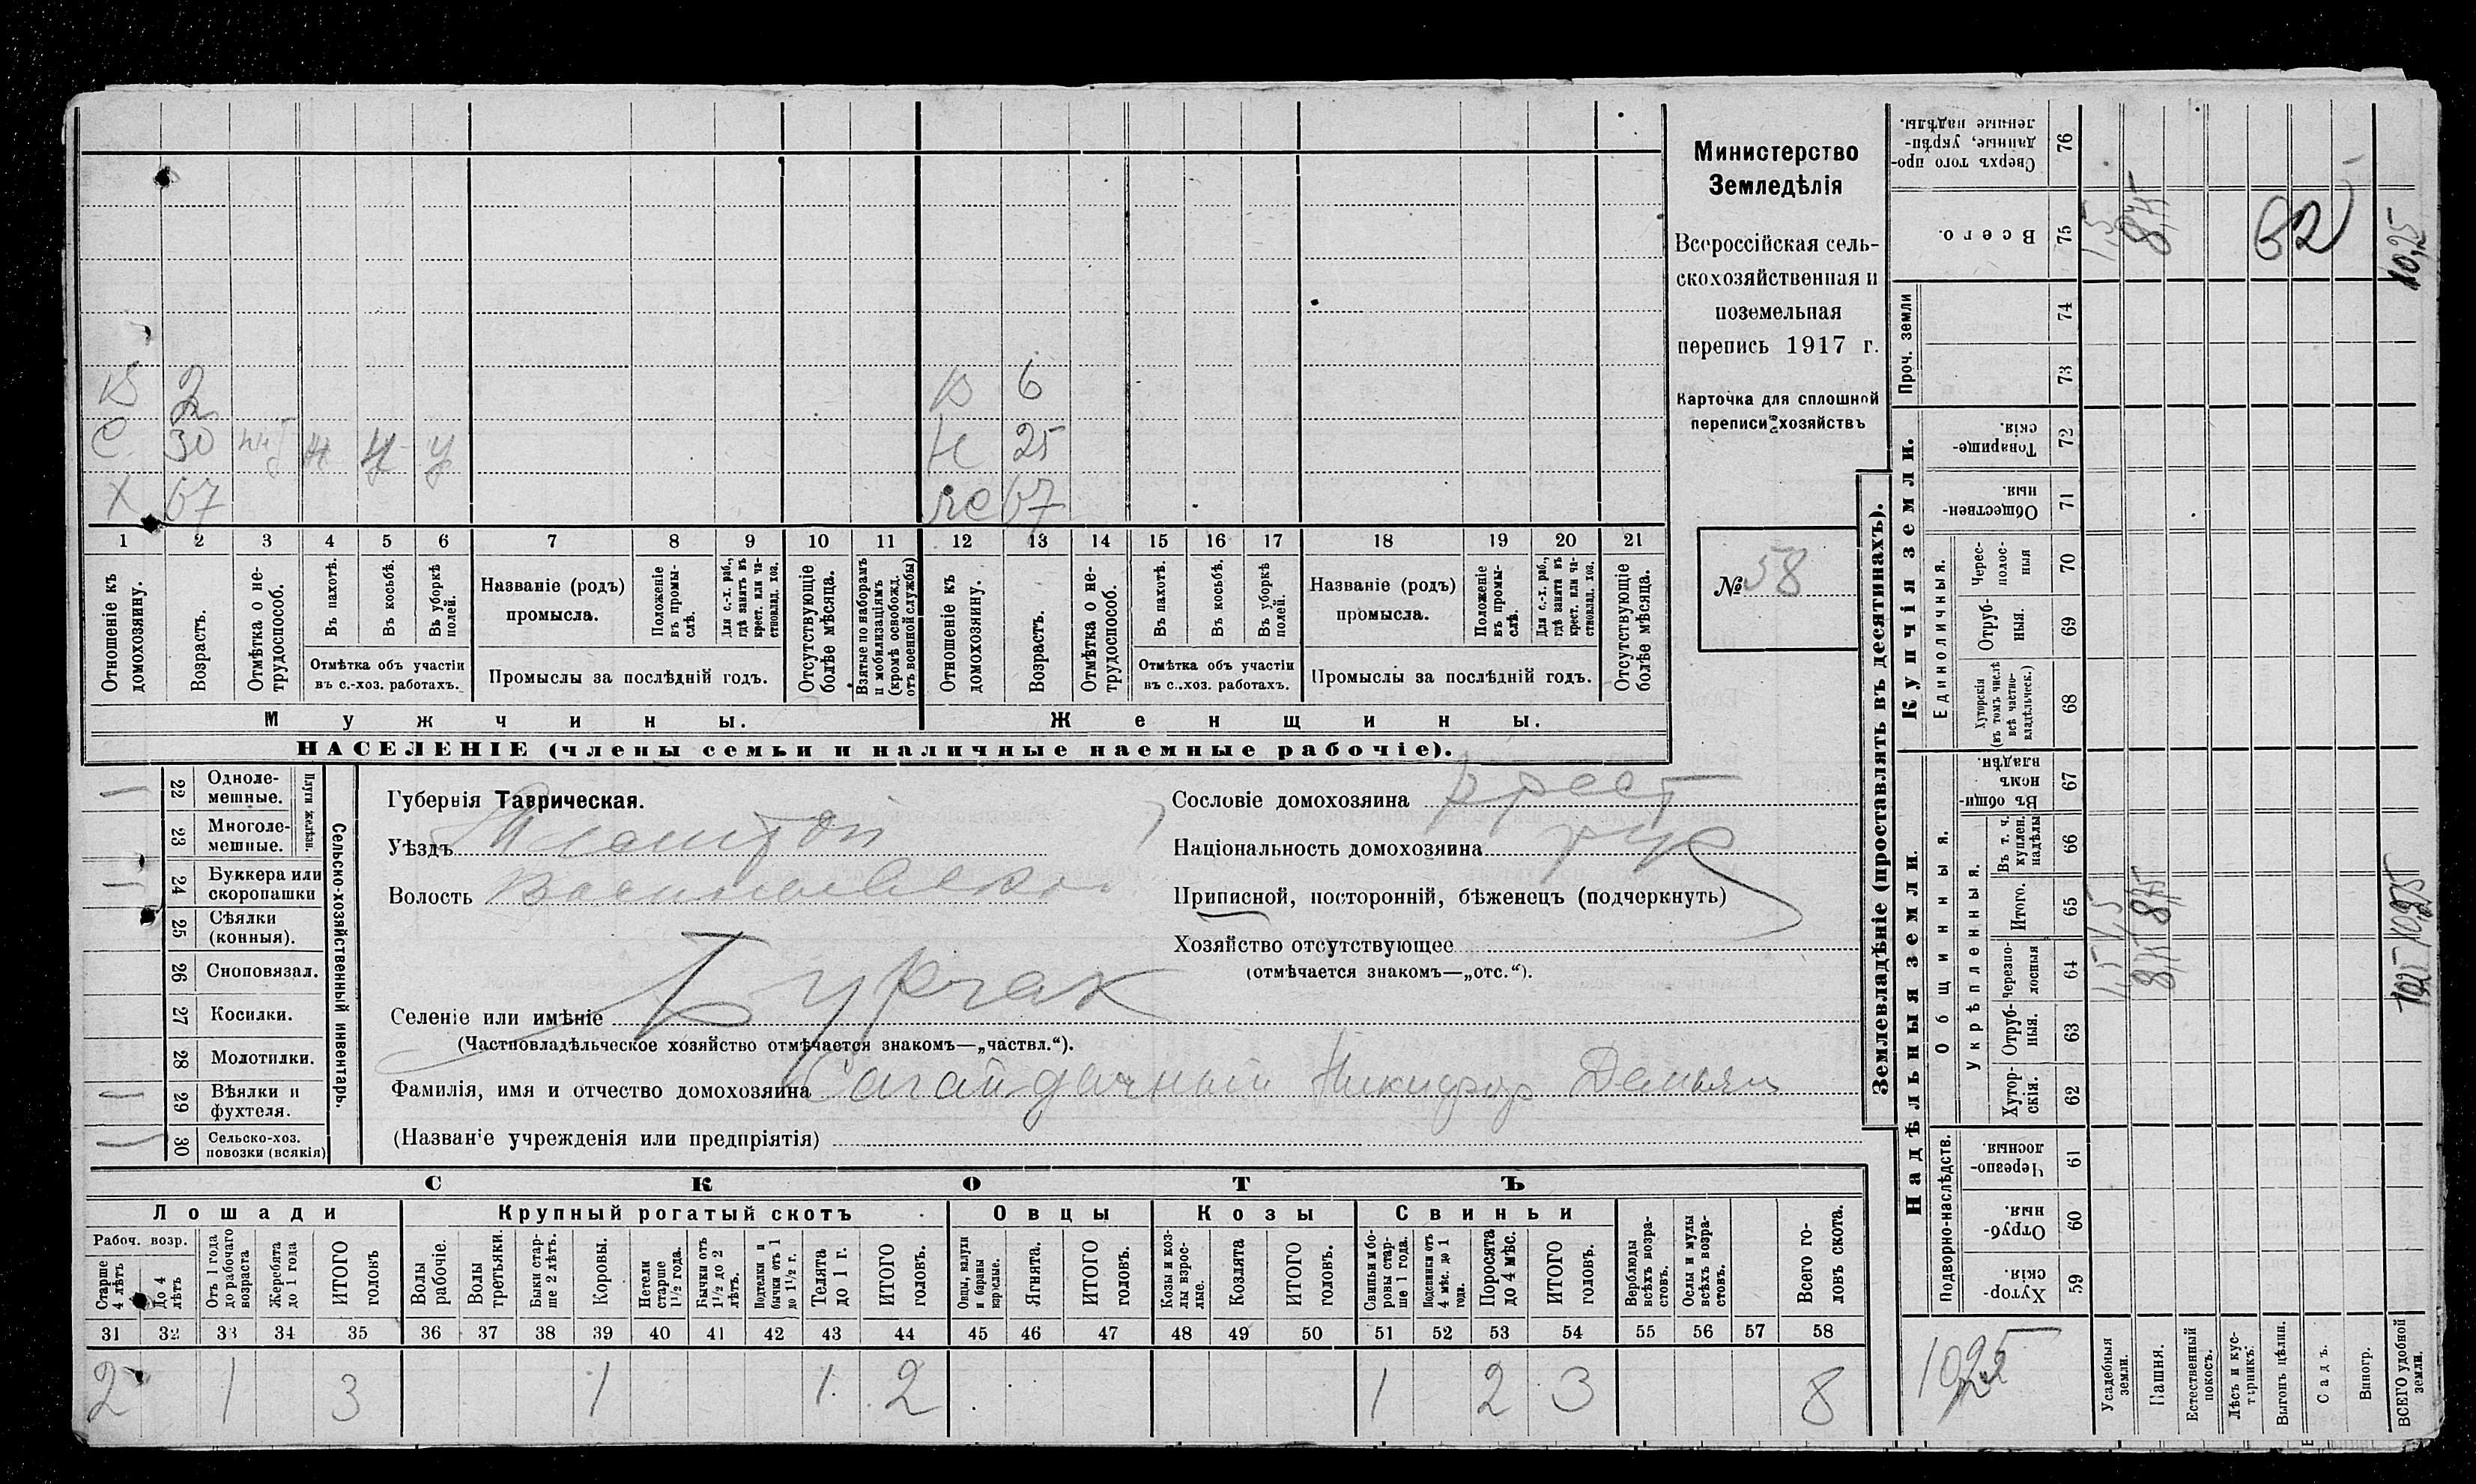 В 2 В 6
С 30 н у у Н 25
Х 67 Же 67
1 2 3 4 5 6 7 8 9 10 11 12 13 14 15 16 17 18 19 20 21
Отношеніе къ домохозяину.
Возрастъ.
Отмѣтка о не-трудоспособ.
Въ пахотѣ.
Въ косьбѣ.
Въ уборкѣ полей.
Отмѣтка объ участіи
въ с.-хоз. работахъ.
Названіе (родъ)
промысла.
Положеніе въ промы-слѣ.
Для с.-х. раб., гдѣ занятъ въ крест. или ча-стновлад. хоз.
Промыслы за послѣдній годъ.
Отсутствующіе болѣе мѣсяца.
Взятые по наборамъ и мобилизаціямъ (кромѣ освобожд. отъ военной службы)
Отношеніе къ домохозяину.
Возрастъ.
Отмѣтка о не-трудоспособ.
Въ пахотѣ.
Въ косьбѣ.
Въ уборкѣ полей.
Отмѣтка объ участіи
въ с.-хоз. работахъ.
Названіе (родъ)
промысла.
Положеніе въ промы-слѣ.
Для с.-х. раб., гдѣ занята въ крест. или ча-стновлад. хоз.
Промыслы за послѣдній годъ.
Отсутствующіе болѣе мѣсяца.
Мужчины. Женщины.
НАСЕЛЕНІЕ (члены семьи и наличные наемные рабочіе).
Министерство
Земледѣлія
Всероссійская сель-
скохозяйственная и
поземельная
перепись 1917 г.
Карточка для сплошной
переписи хозяйствъ
№ 58
22 Одноле-мешные.
23 Многоле-мешные.
Плуги желѣзн.
24 Буккера или скоропашки
25 Сѣялки (конныя).
26 Сноповязал.
27 Косилки.
28 Молотилки.
29 Вѣялки и фухтеля.
30 Сельско-хоз. повозки (всякія)
Сельско-хозяйственный инвентарь.
Губернія Таврическая.
Уѣздъ
Волость
Селеніе или имѣніе Бурчак
(Частновладѣльческое хозяйство отмѣчается знакомъ—„частвл.“).
Фамилія, имя и отчество домохозяина Сагайдачный Никифор Демьян
(Названіе учрежденія или предпріятія)
Сословіе домохозяина крест
Національность домохозяина рус
Приписной, посторонній, бѣженецъ (подчеркнуть)
Хозяйство отсутствующее
(отмѣчается знакомъ—„отс.“).
СКОТЪ
Лошади Крупный рогатый скотъ Овцы Козы Свиньи
Рабоч. возр.
Старше 4 лѣтъ
До 4 лѣтъ
Отъ 1 года до рабочаго возраста
Жеребята до 1 года
ИТОГО головъ
Волы рабочіе.
Волы третьяки.
Быки стар-ше 2 лѣтъ.
Коровы.
Нетели старше 1½ года.
Бычки отъ 1½ до 2 лѣтъ.
Подтелки и бычки отъ 1 до 1½ г.
Телята до 1 г.
ИТОГО головъ.
Овцы, валухи и бараны взрослые.
Ягнята.
ИТОГО головъ.
Козы и коз-лы взрос-лые.
Козлята
ИТОГО головъ.
Свиньи и бо-ровы стар-ше 1 года.
Подсвинки отъ 4 мѣс. до 1 года.
Поросята до 4 мѣс.
ИТОГО головъ.
Верблюды всѣхъ возра-стовъ.
Ослы и мулы всѣхъ возра-стовъ.
Всего го-ловъ скота.
31 32 33 34 35 36 37 38 39 40 41 42 43 44 45 46 47 48 49 50 51 52 53 54 55 56 57 58
2 1 3 1 1 2 1 2 3 8
Землевладѣніе (проставлять въ десятинахъ).
Надѣльныя земли. Купчія земли. Проч. земли
Подворно-наслѣдств.
Общинныя.
Укрѣпленныя.
Единоличныя.
59 Хутор-скія.
60 Отруб-ныя.
61 Черезпо-лосныя
62 Хутор-скія.
63 Отруб-ныя.
64 Черезпо-лосныя 1,5
65 Итого. 1,5 8,75 10,25
66 Въ т. ч. куплен. надѣлы
67 Въ общи-номъ владѣн.
68 Хуторскія (въ томъ числѣ всѣ частно-владѣльческ.)
69 Отруб-ныя.
70 Черес-полос-ныя
71 Обществен-ныя.
72 Товарище-скія.
73
74
75 Всего. 1,5 8,75 10,25
76 Сверхъ того про-данные, укрѣп-ленные надѣлы.
Усадебныя земли.
Пашня.
Естественный покосъ.
Лѣсъ и кус-тарникъ.
Выгонъ цѣлин.
Садъ.
Виногр.
ВСЕГО удобной земли.